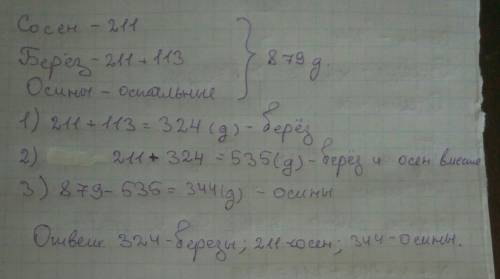 Сосен - 211
Берёз - 211 + 113
879 д.
Осины - остальные
1) 211 + 113 = 324 (д) - берёз
2) 211 + 324 = 535 (д) - берёз и осен вместе
3) 879 - 535 = 344 (д) - осины
Ответ: 324 - березы; 211 - сосен; 344 - осины.